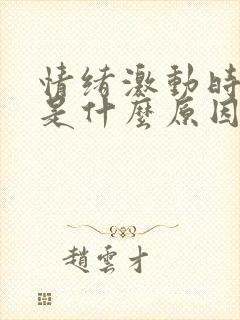 情绪激動時
是什麼原因
趙雲才